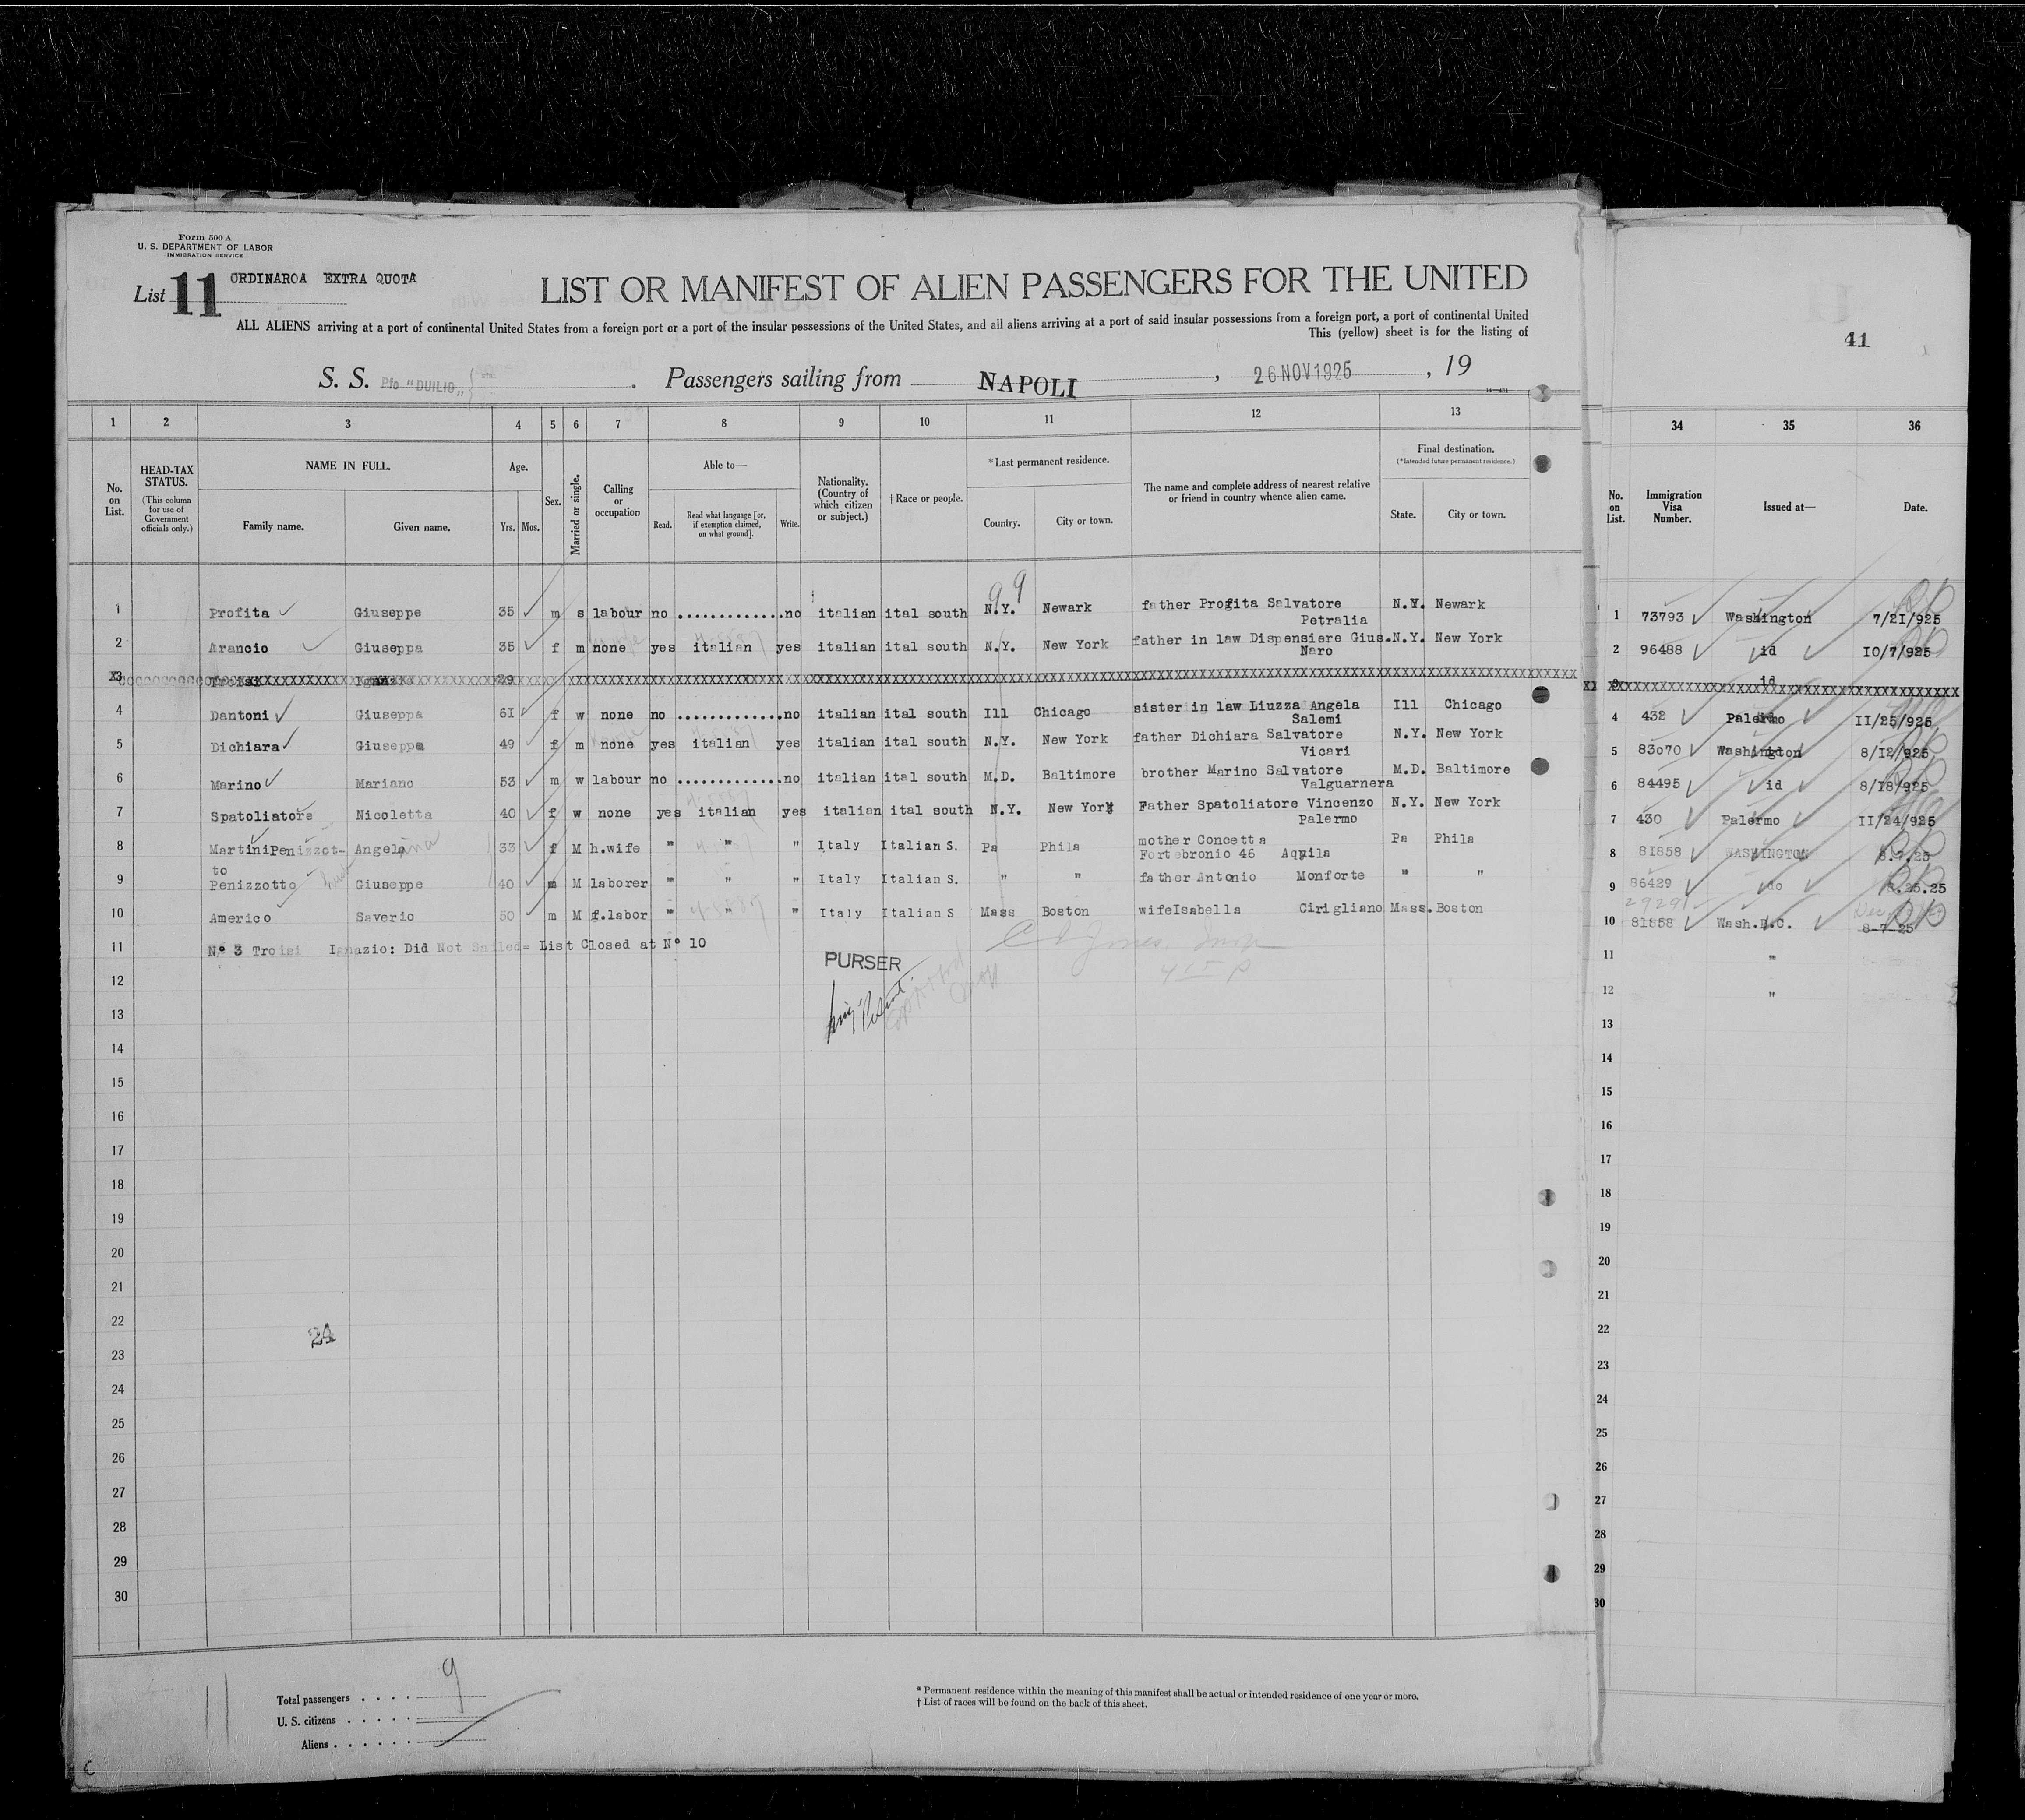 Form 500 A
U. S. DEPARTMENT OF LABOR
IMMIGRATION SERVICE
List 11 ORDINAROA EXTRA QUOTA
LIST OR MANIFEST OF ALIEN PASSENGERS FOR THE UNITED
ALL ALIENS arriving at a port of continental United States from a foreign port or a port of the insular possessions of the United States, and all aliens arriving at a port of said insular possessions from a foreign port, a port of continental United
This (yellow) sheet is for the listing of
41
S. S. Pfo "DUILIO„ . Passengers sailing from NAPOLI , 26 NOV 1925 , 19
1 2 3 4 5 6 7 8 9 10 11 12 13 34 35 36
No. on List.
HEAD-TAX STATUS. (This column for use of Government officials only.)
NAME IN FULL. Family name. Given name.
Age. Yrs. Mos.
Sex.
Married or single.
Calling or occupation
Able to— Read. Read what language [or, if exemption claimed, on what ground]. Write.
Nationality. (Country of which citizen or subject.)
†Race or people.
*Last permanent residence. Country. City or town.
The name and complete address of nearest relative or friend in country whence alien came.
Final destination. (*Intended future permanent residence.) State. City or town.
No. on List. Immigration Visa Number. Issued at— Date.
99
1 Profita Giuseppe 35 m s labour no ............. no italian ital south N.Y. Newark father Profita Salvatore Petralia N.Y. Newark 1 73793 Washington 7/2I/925
2 Arancio Giuseppa 35 f m none yes italian yes italian ital south N.Y. New York father in law Dispensiere Gius. Naro N.Y. New York 2 96488 id IO/7/925
3 Troisi Ignazio 29 id
4 Dantoni Giuseppa 6I f w none no ............. no italian ital south Ill Chicago sister in law Liuzza Angela Salemi Ill Chicago 4 432 Palermo II/25/925
5 Dichiara Giuseppa 49 f m none yes italian yes italian ital south N.Y. New York father Dichiara Salvatore Vicari N.Y. New York 5 83070 Washington 8/I2/925
6 Marino Mariano 53 m w labour no ............. no italian ital south M.D. Baltimore brother Marino Salvatore Valguarnera M.D. Baltimore 6 84495 id 8/I8/925
7 Spatoliatore Nicoletta 40 f w none yes italian yes italian ital south N.Y. New York Father Spatoliatore Vincenzo Palermo N.Y. New York 7 430 Palermo II/24/925
8 Martini Penizzot- to Angela 33 f M h.wife " " " Italy Italian S. Pa Phila mother Concetta Fortebronio 46 Aquila Pa Phila 8 81858 WASHINGTON 8.7.25
9 Penizzotto Giuseppe 40 m M laborer " " " Italy Italian S. " " father Antonio Monforte " " 9 86429 do 8.25.25
10 Americo Saverio 50 m M f.labor " " " Italy Italian S Mass Boston wifeIsabella Cirigliano Mass. Boston 29291 10 81858 Wash.D.C. 8-7-25
11 Nº 3 Troisi Ignazio: Did Not Sailed= List Closed at Nº 10 11 "
PURSER
12 12 "
13 13
14 14
15 15
16 16
17 17
18 18
19 19
20 20
21 21
22 22
24
23 23
24 24
25 25
26 26
27 27
28 28
29 29
30 30
Total passengers . . . . 9
U. S. citizens . . . . .
Aliens . . . . . .
* Permanent residence within the meaning of this manifest shall be actual or intended residence of one year or more.
† List of races will be found on the back of this sheet.